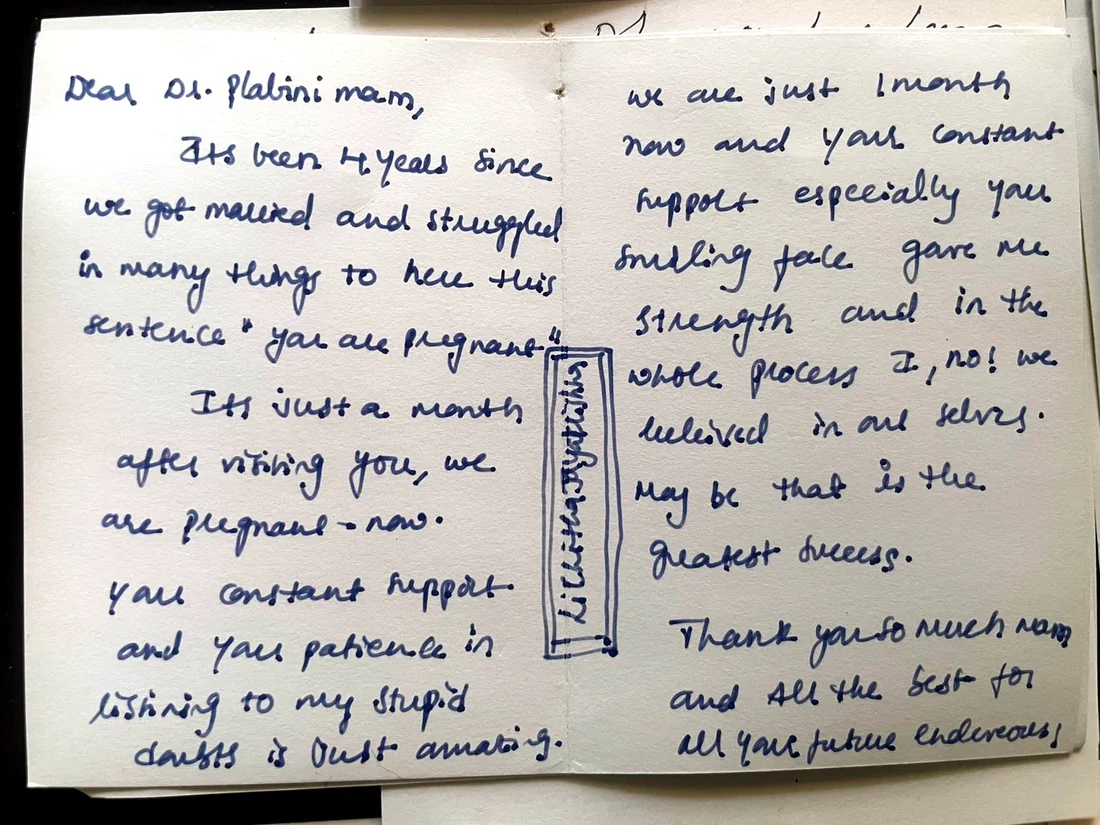 Dear Dr. Plabini mam,
Its been 4 years since
we got married and struggled
in many things to here this
sentence "you are pregnant"
Its just a month
after visiting you, we
are pregnant - now.
your constant support
and your patience in
listining to my stupid
doubts is Just amazing.
we are just 1 month
now and your constant
support especially your
smiling face gave me
strength and in the
whole process I, no! we
beleived in our selves.
May be that is the
greatest success.
Thank you so much mam
and All the best for
all your future endereous